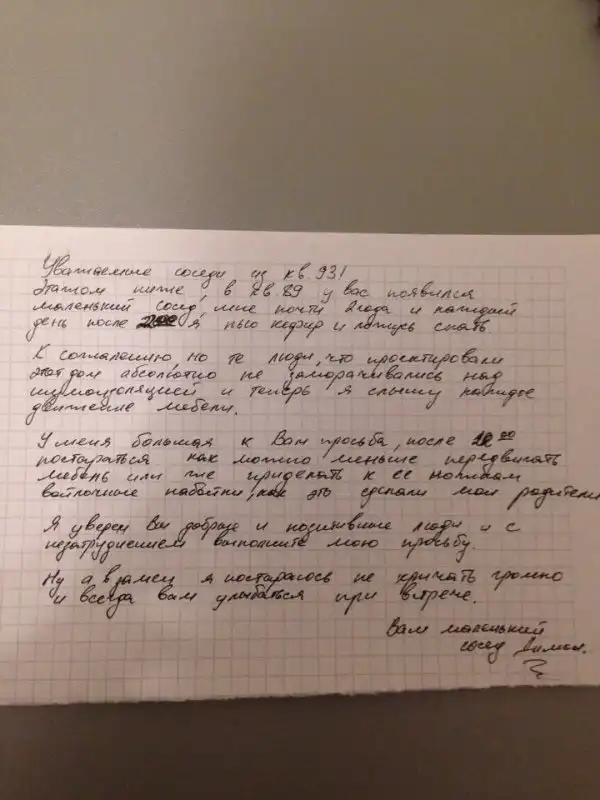 Уважаемые соседи из кв. 93!
Этажом ниже, в кв. 89 у вас появился
маленький сосед, мне почти 2 года и каждый
день после я пью кефир и ложусь спать
К сожалению но те люди, что проектировали
этот дом абсолютно не заморачивались над
шумоизоляцией и теперь я слышу каждое
движение мебели.
У меня большая к Вам просьба, после
постараться как можно меньше передвигать
мебель или же приделать к ее ножкам
войлочные набойки, как это сделали мои родители
Я уверен Вы добрые и позитивные люди и с
незатруднением выполните мою просьбу.
Ну а взамен я постараюсь не кричать громко
и всегда вам улыбаться при встрече.
Вам маленький
сосед